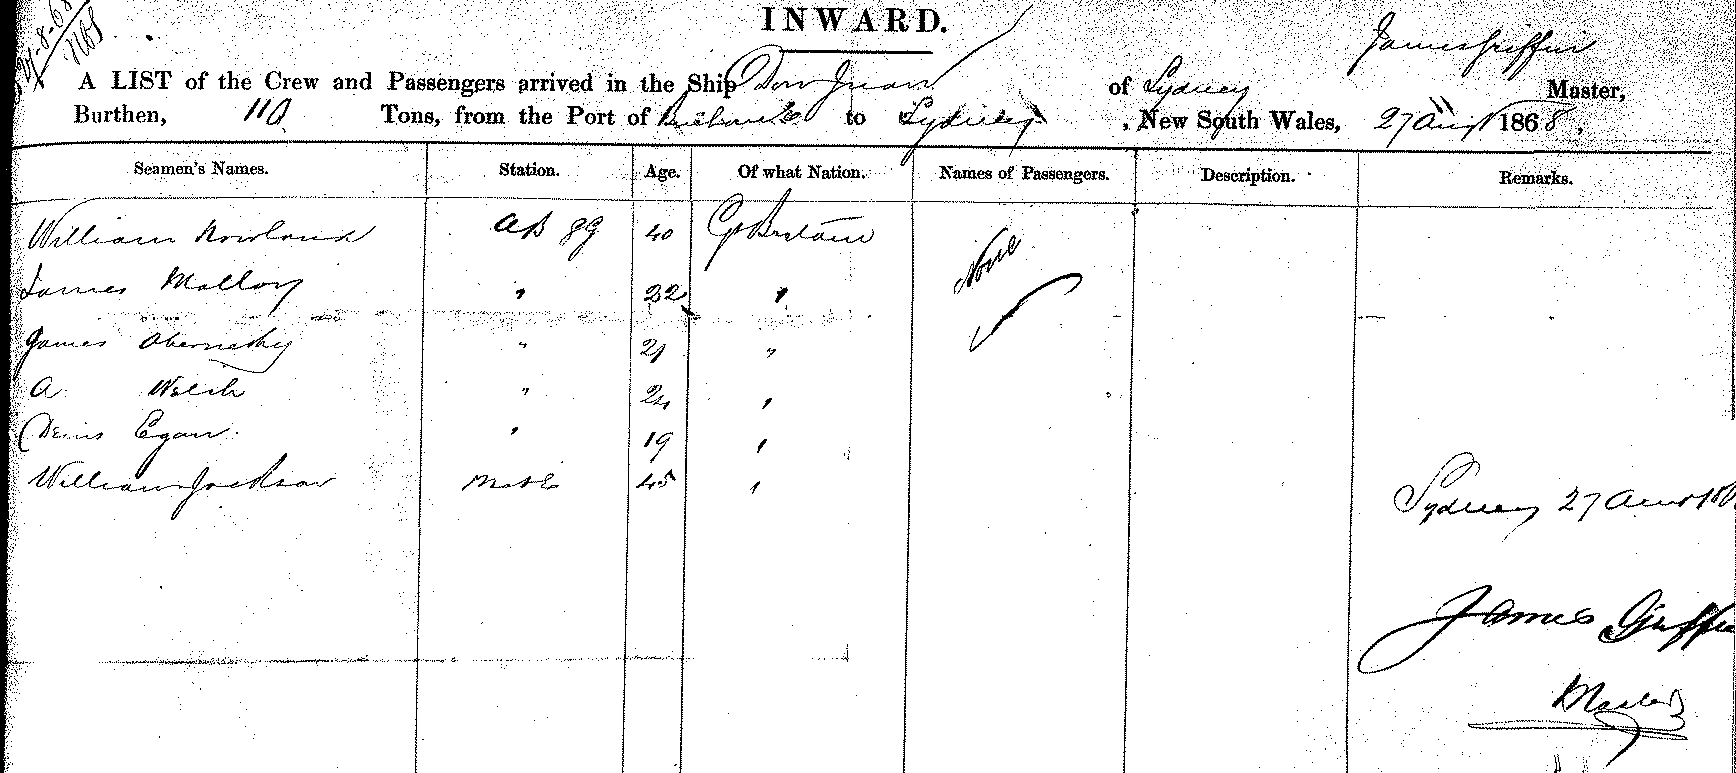 27-8-68
INWARD.
James Griffin
A LIST of the Crew and Passengers arrived in the Ship Don Juan of Sydney Master,
Burthen, 110 Tons, from the Port of to Sydney, New South Wales, 27 Augt 1868.
Seamen's Names. Station. Age. Of what Nation. Names of Passengers. Description. Remarks.
William Rowland AB 40 Gt Britain None
James Malloy " 22 "
James Abernethy " 21 "
A Welsh " 24 "
Denis Egan " 19 "
William Jackson Mate 45 "
Sydney 27 Augt 186
James Griffin
Master